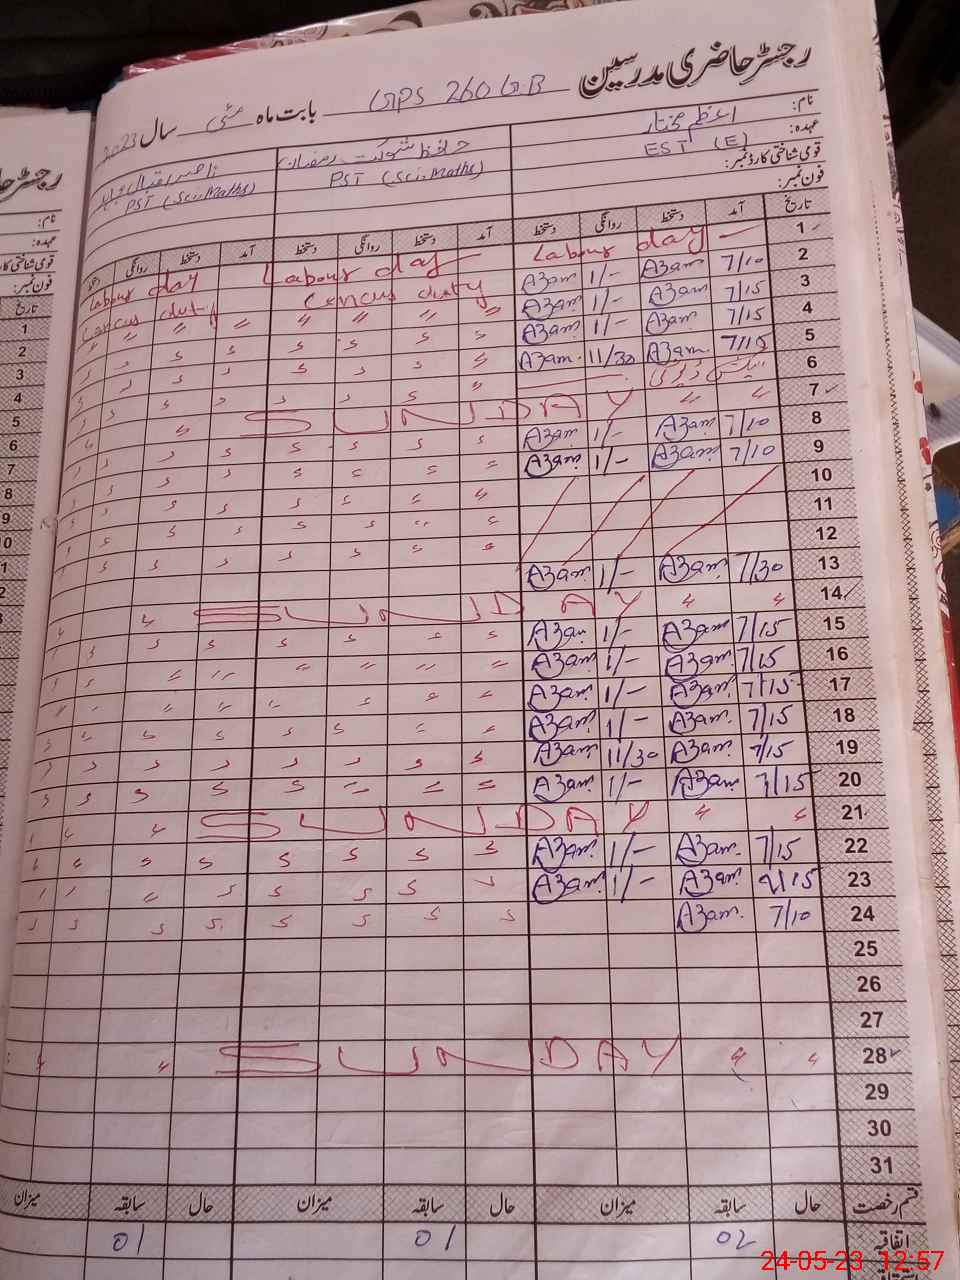 رجسٹر حاضری مدرسین GPS 260 GB بابت ماہ مئی سال 2023
نام: اعظم مختار حافظ شوکت رمضان
عہدہ: EST (E) PST (Sci.Maths) PST (Sci.Maths)
قومی شناختی کارڈ نمبر:
فون نمبر:
تاریخ آمد دستخط روانگی دستخط آمد دستخط روانگی دستخط آمد دستخط روانگی
1 Labour day Labour day Labour day
2 7/10 A3am 1/- A3am Cencus duty Cencus duty
3 7/15 A3am 1/- A3am
4 7/15 A3am 1/- A3am
5 7/15 A3am. 11/30 A3am.
6
7 SUNDAY
8 7/10 A3am 1/- A3am
9 7/10 A3am. 1/- A3am.
10
11
12
13 7/30 A3am. 1/- A3am.
14 SUNDAY
15 7/15 A3am 1/- A3am
16 7/15 A3am. 1/- A3am.
17 7/15 A3am. 1/- A3am.
18 7/15 A3am. 1/- A3am.
19 7/15 A3am. 11/30 A3am.
20 7/15 A3am. 1/- A3am.
21 SUNDAY
22 7/15 A3am. 1/- A3am.
23 A3am. 1/- A3am.
24 7/10 A3am.
25
26
27
28 SUNDAY
29
30
31
قسم رخصت حال سابقہ میزان حال سابقہ میزان حال سابقہ میزان
اتفاقیہ 02 01 01
رجسٹر
نام:
عہدہ:
فون نمبر:
تاریخ
1
2
3
4
5
6
7
8
24-05-23 12:57